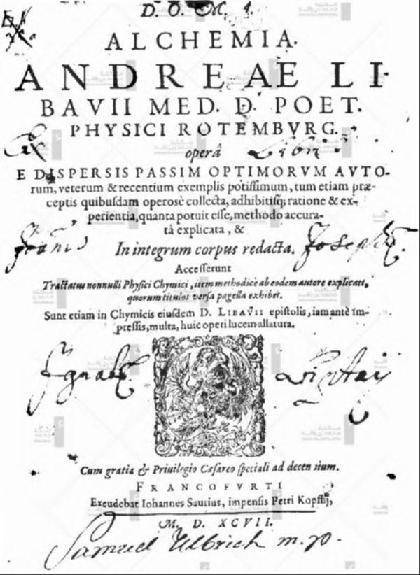 D. O. M. A.
ALCHEMIA.
ANDREAE LI-
BAVII MED. D. POET.
PHYSICI ROTEMBVRG.
operâ
E DISPERSIS PASSIM OPTIMORVM AVTO-
rum, veterum & recentium exemplis potissimum, tum etiam præ-
ceptis quibusdam operosè collecta, adhibitisq; ratione & ex-
perientia, quanta potuit esse, methodo accura-
tâ explicata, &
In integrum corpus redacta.
Accesserunt
Tractatus nonnulli Physici Chymici, item methodicè ab eodem autore explicati,
quorum titulos versa pagella exhibet.
Sunt etiam in Chymicis eiusdem D. LIBAVII epistolis, iam antè im-
pressis, multa, huic operi lucem allatura.
Cum gratia & Privilegio Cæsareo speciali ad decennium.
FRANCOFVRTI
Excudebat Iohannes Saurius, impensis Petri Kopffij,
M. D. XCVII.
Ex Libris
Josephi
Samuel Ulbrich m. p.